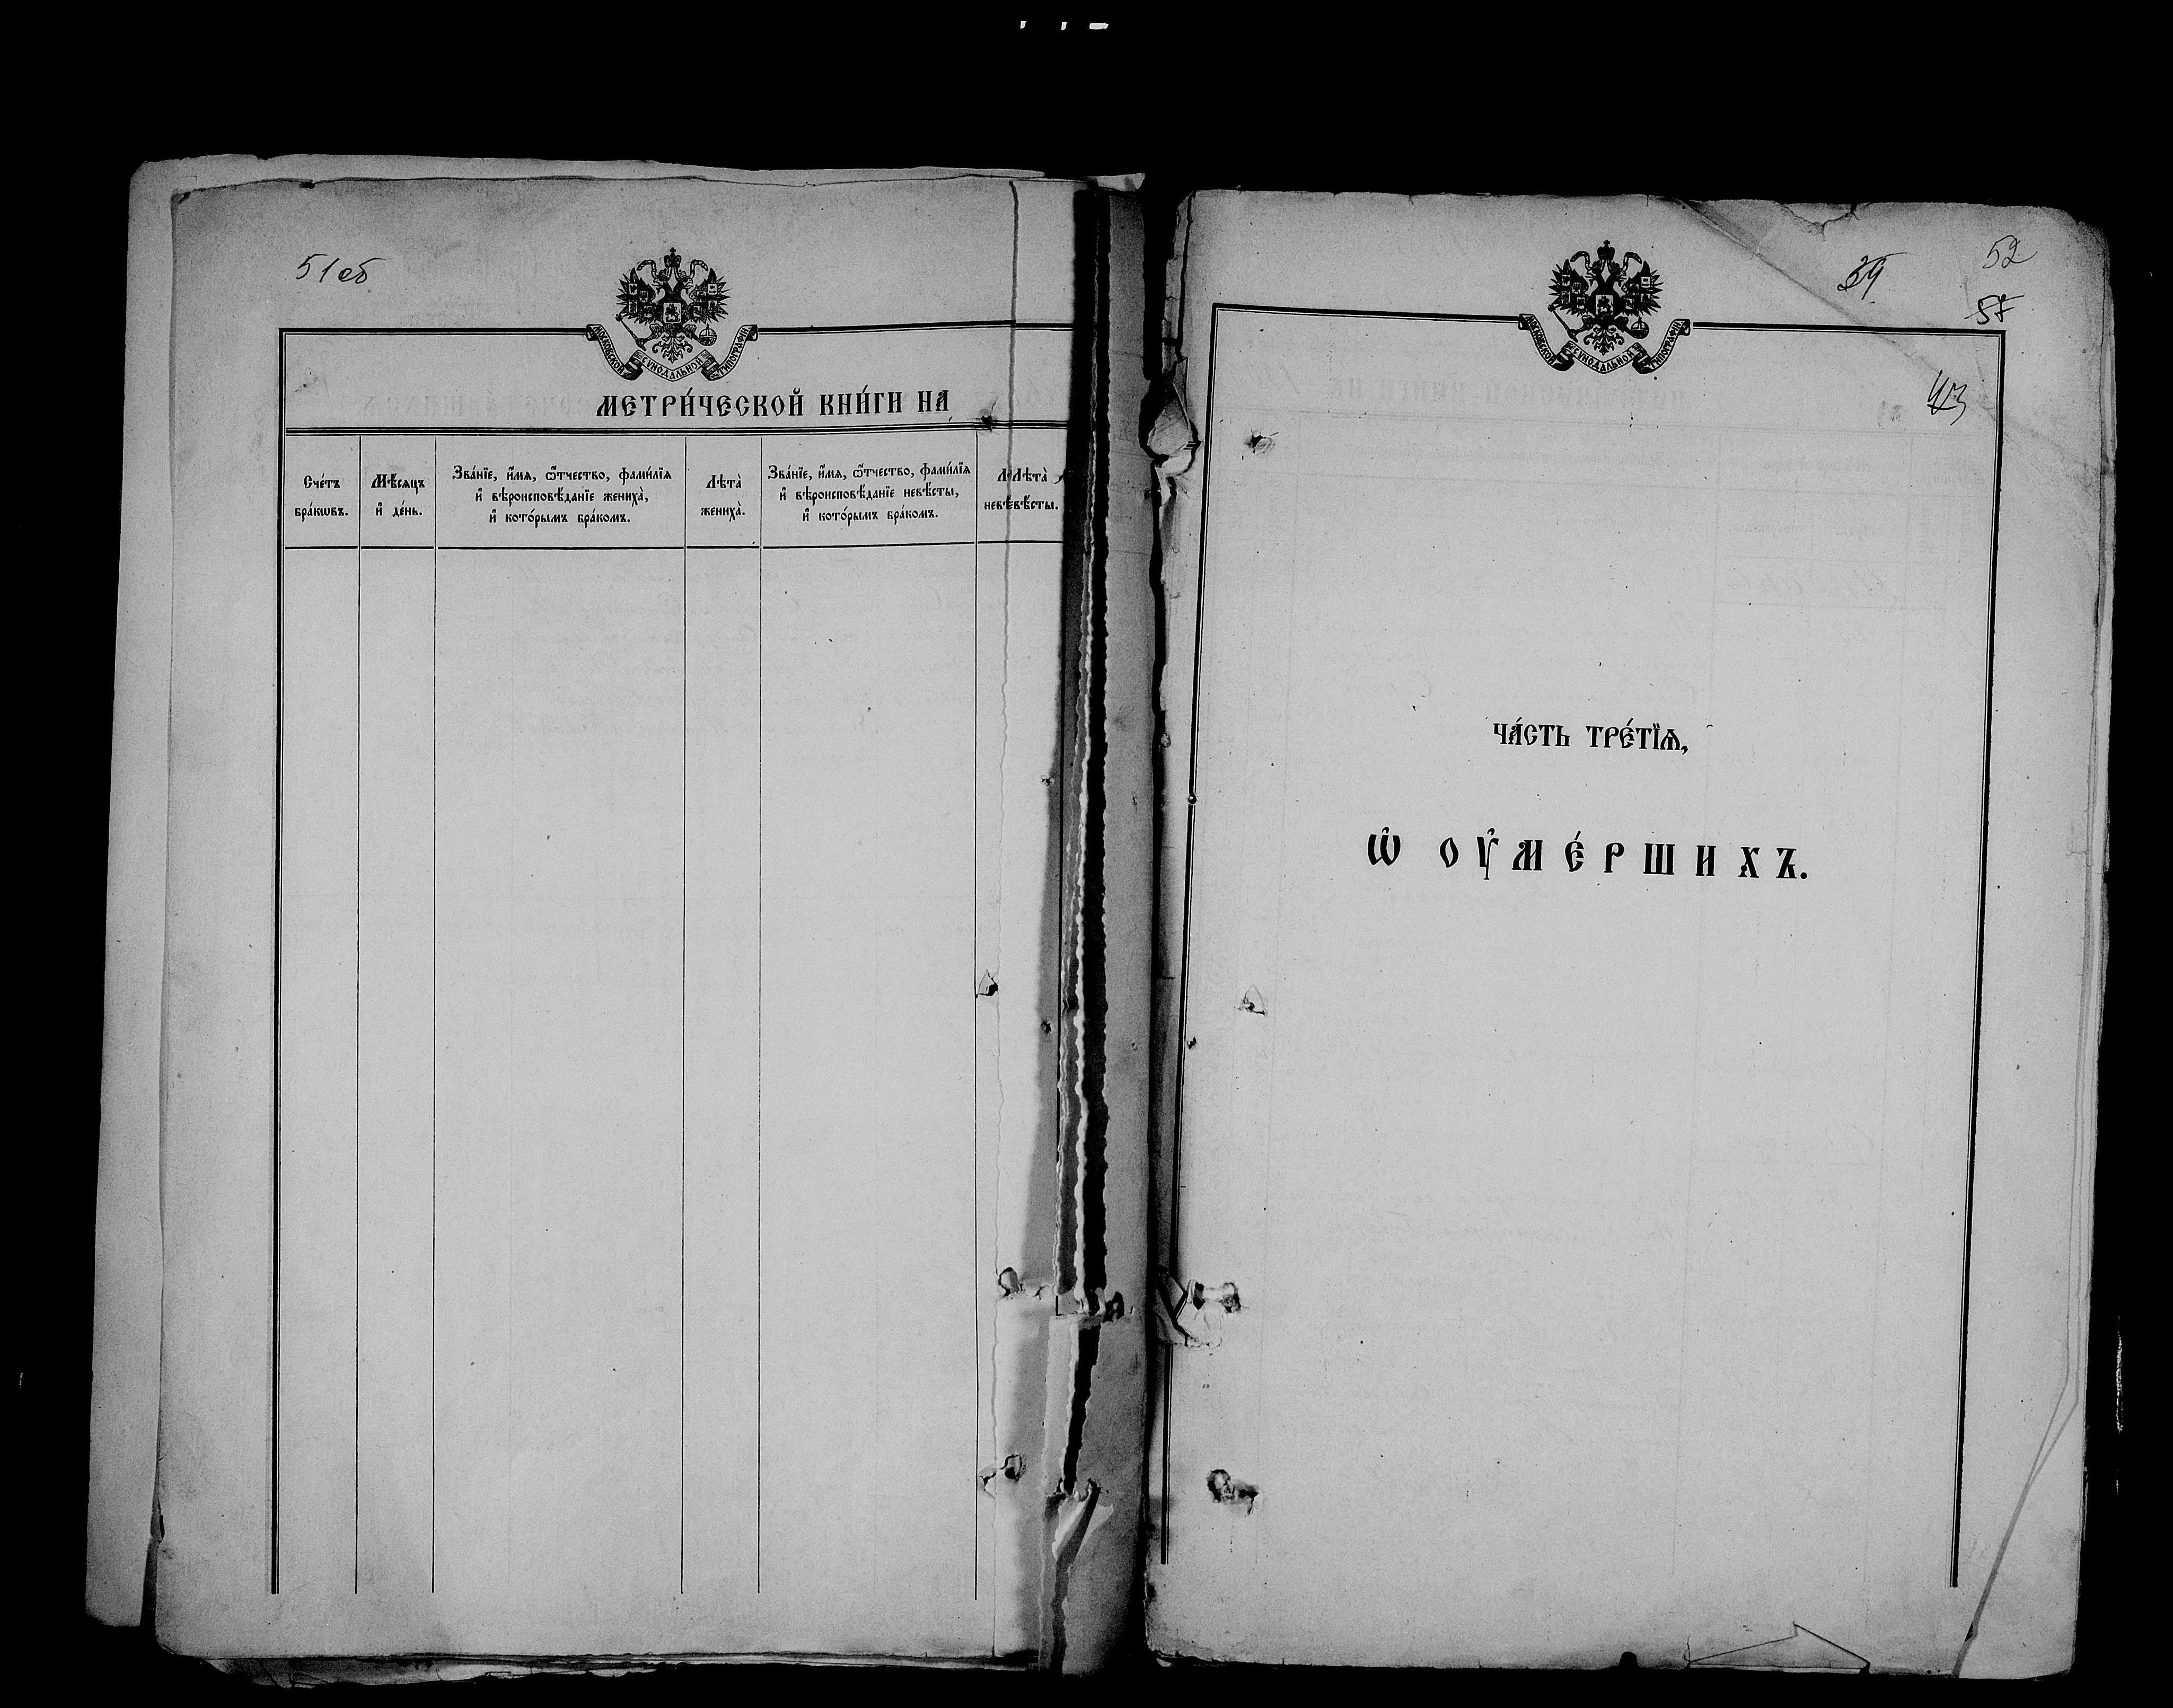 51 об
МОСКОВСКОЙ СѴНОДАЛЬНОЙ ТИПОГРАФІИ
МЕТРИ́ЧЕСКОЙ КНИ́ГИ НА
Сче́тъ
бра́кѡвъ.
Мѣ́сяцъ
и҆ де́нь.
Зва́нїе, и҆́мѧ, ѻ҆́тчество, фами́лїѧ
и҆ вѣроисповѣ́данїе жениха̀,
и҆ кото́рымъ бра́комъ.
Лѣта̀
жениха̀.
Зва́нїе, и҆́мѧ, ѻ҆́тчество, фами́лїѧ
и҆ вѣроисповѣ́данїе невѣ́сты,
и҆ кото́рымъ бра́комъ.
Лѣта̀
невѣ́сты.
52
39
57
43
МОСКОВСКОЙ СѴНОДАЛЬНОЙ ТИПОГРАФІИ
ЧА́СТЬ ТРЕ́ТЇѦ,
Ѡ҆ ОУ҆МЕ́РШИХЪ.